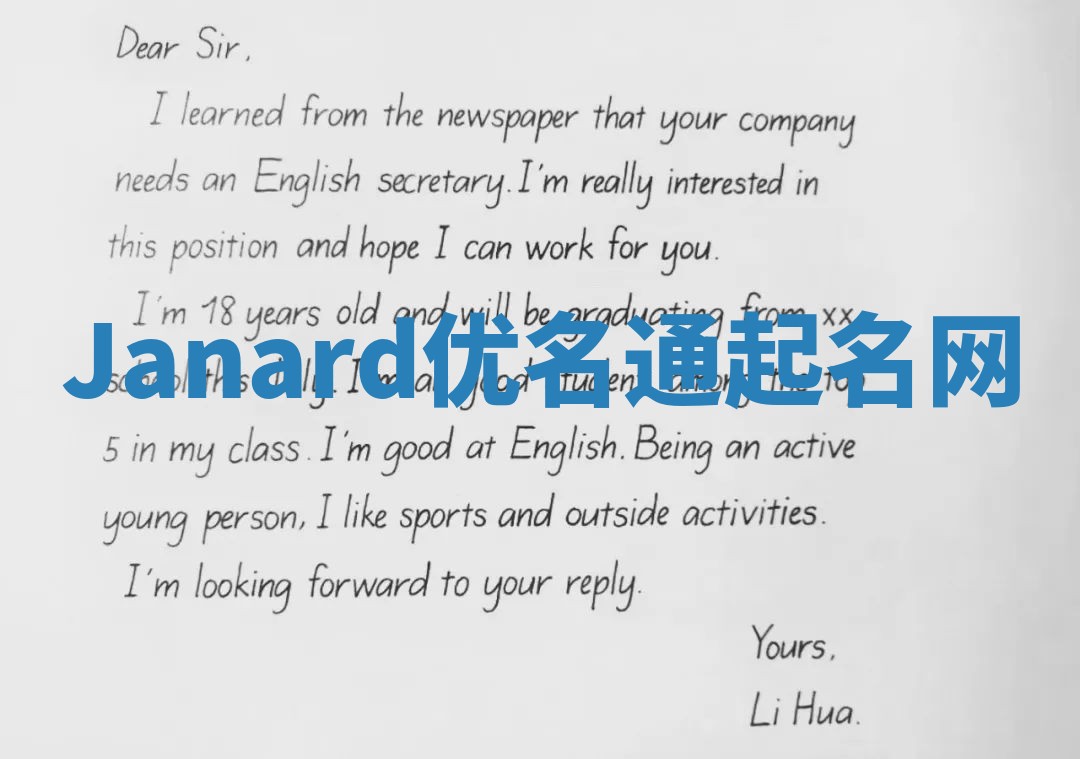 Dear Sir,
I learned from the newspaper that your company
needs an English secretary. I'm really interested in
this position and hope I can work for you.
I'm 18 years old and will be graduating from xx
Janard优名通起名网
school this July. I'm a good student among the top
5 in my class. I'm good at English. Being an active
young person, I like sports and outside activities.
I'm looking forward to your reply.
Yours,
Li Hua.